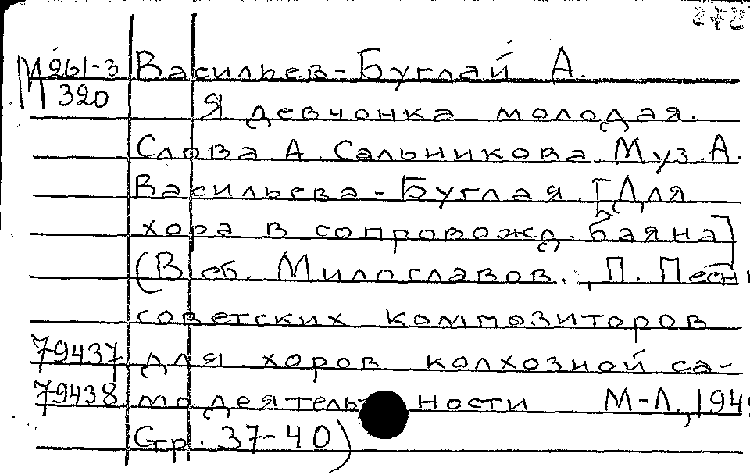 272
М 261-3 Васильев-Буглай А.
320 Я девчонка молодая.
Слова А. Сальникова. Муз. А.
Васильева-Буглая. [Для
хора в сопровожд. баяна]
(В сб. Милославов., П. Песн
советских композиторов
79437 для хоров колхозной са-
79438 модеятельности М-Л., 194
Стр. 37-40)